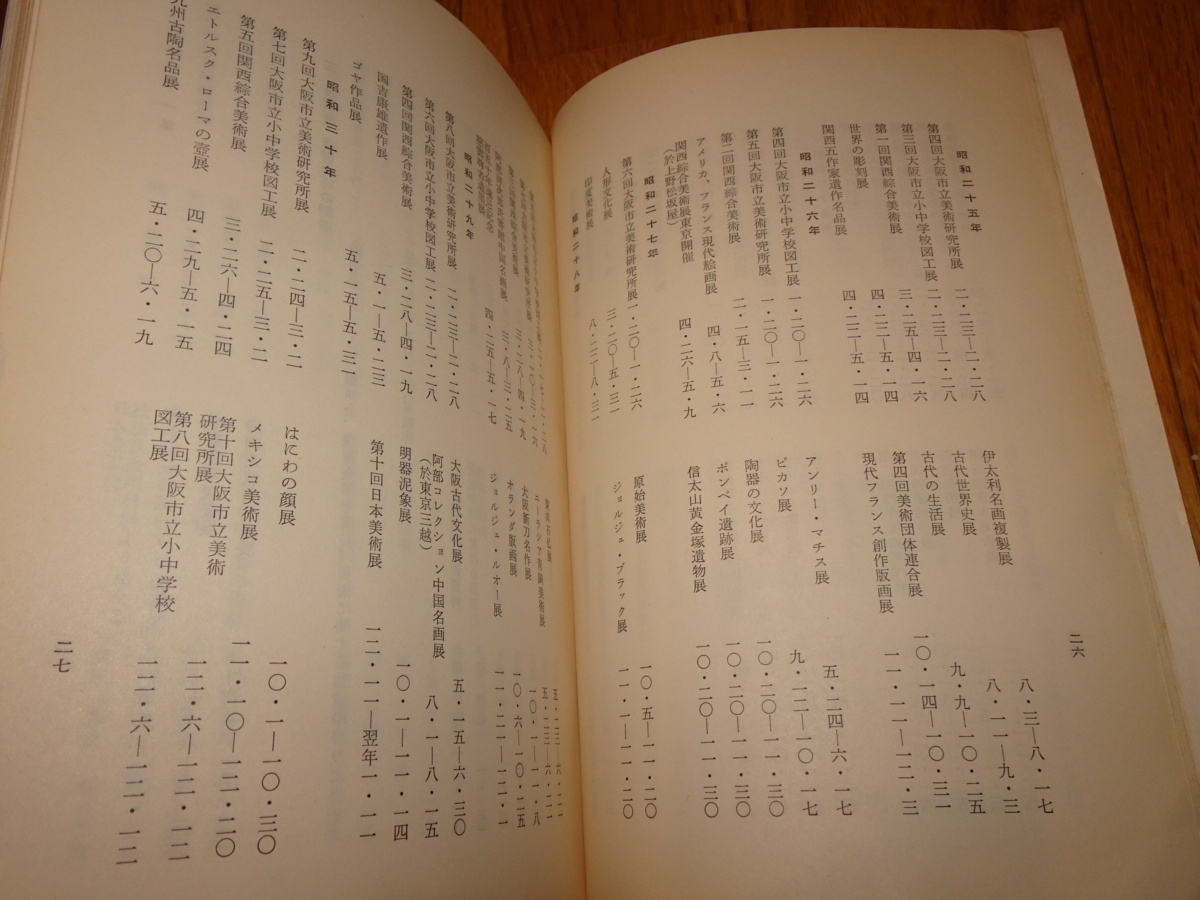 昭和二十五年
第四回大阪市立美術研究所展 二・二三―二・二八
第三回大阪市立小中学校図工展 二・二三―二・二八
第一回関西綜合美術展 三・二五―四・一六
世界の彫刻展 四・二二―五・一四
関西五作家遺作名品展 四・二二―五・一四
昭和二十六年
第四回大阪市立小中学校図工展 一・二〇―一・二六
第五回大阪市立美術研究所展 一・二〇―一・二六
第二回関西綜合美術展 二・一五―三・一一
アメリカ、フランス現代絵画展 四・八―五・六
関西綜合美術展東京開催
(於上野松坂屋) 四・二六―五・九
昭和二十七年
第六回大阪市立美術研究所展 一・二〇―一・二六
人形文化展 三・二〇―五・三一
印度美術展 八・二二―八・三一
昭和二十八年
伊太利名画複製展 八・三―八・一七
古代世界史展 八・一一―九・三
古代の生活展 九・九―一〇・二五
第四回美術団体連合展 一〇・一四―一〇・三一
現代フランス創作版画展 一一・一一―一二・三
アンリー・マチス展 五・二四―六・一七
ピカソ展 九・二二―一〇・一七
陶器の文化展 一〇・二〇―一一・三〇
ポンペイ遺跡展 一〇・二〇―一一・三〇
信太山黄金塚遺物展 一〇・二〇―一一・三〇
原始美術展 一〇・五―一一・二〇
ジョルジュ・ブラック展 一一・一―一一・二〇
二六
昭和二十九年
第八回大阪市立美術研究所展 二・二三―二・二八
第六回大阪市立小中学校図工展 二・二三―二・二八
第四回関西綜合美術展 三・二八―四・一九
国吉康雄遺作展 五・一―五・二三
ゴヤ作品展 五・一五―五・三一
昭和三十年
第九回大阪市立美術研究所展 二・二四―三・二
第七回大阪市立小中学校図工展 二・二五―三・二
第五回関西綜合美術展 三・二六―四・二四
エトルスク・ローマの壺展 四・二九―五・一五
九州古陶名品展 五・二〇―六・一九
ユーラシア青銅美術展
大阪新刀名作展
オランダ版画展 一〇・六―一〇・二五
ジョルジュ・ルオー展 一一・二一―一二・一
大阪古代文化展 五・一五―六・三〇
阿部コレクション中国名画展
(於東京三越) 八・一―八・一五
明器泥象展 一〇・一―一一・一四
第十回日本美術展 一二・一一―翌年一・一一
はにわの顔展 一〇・一―一〇・三〇
メキシコ美術展 一一・一〇―一二・二〇
第十回大阪市立美術
研究所展 一二・六―一二・一二
第八回大阪市立小中学校
図工展 一二・六―一二・一二
二七